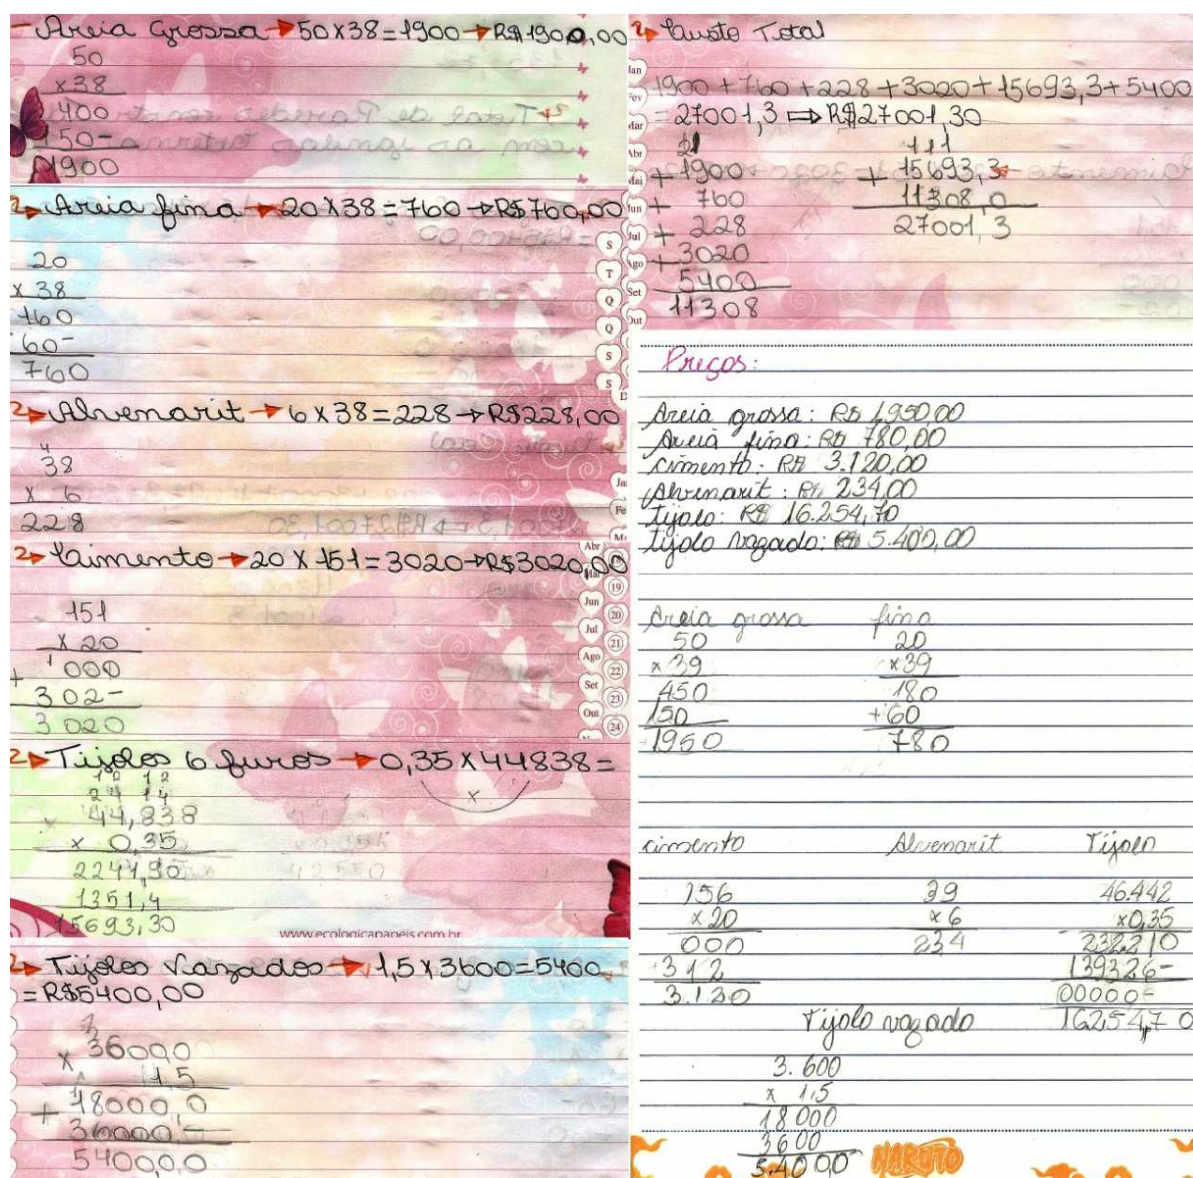 Areia Grossa → 50x38=1900 → R$1900,00
50
x38
400
150-
1900
2→ Areia fina → 20x38=760 → R$760,00
20
x 38
160
60-
760
2→ Alvenarit → 6x38=228 → R$228,00
4
38
x 6
228
2→ Cimento → 20 X 151=3020→R$3020,00
151
x 20
000
+
302-
3020
2→ Tijolos 6 furos → 0,35x44838=
12 12
24 14
44,838
x 0,35
2241,90
1351,4
15693,30
www.ecologicapapeis.com.br
2→ Tijolos Vazados → 1,5x3600=5400
=R$5400,00
3
x 3600,0
1,5
18000,0
+ 36000-
5400,0,0
2→ Custo Total
1900+760+228+3020+15693,3+5400
=27001,3 ⇒ R$27001,30
21
+ 1900
+ 760
+ 228
+ 3020
5400
11308
111
+ 15693,3
11308,0
27001,3
Preços:
Areia grossa: R$ 1,950,00
Areia fina: R$ 780,00
cimento: R$ 3.120,00
Alvenarit: R$ 234,00
tijolo: R$ 16.254,70
tijolo vazado: R$ 5.400,00
Areia grossa fina
50 20
x39 x39
450 180
150 +60
1950 780
cimento Alvenarit Tijolo
156 39 46.442
x20 x6 x0,35
000 234 232210
312 139326-
3.120 00000-
Tijolo vazado 16254,70
3.600
x 1,5
18000
3600
5.400,0
NARUTO